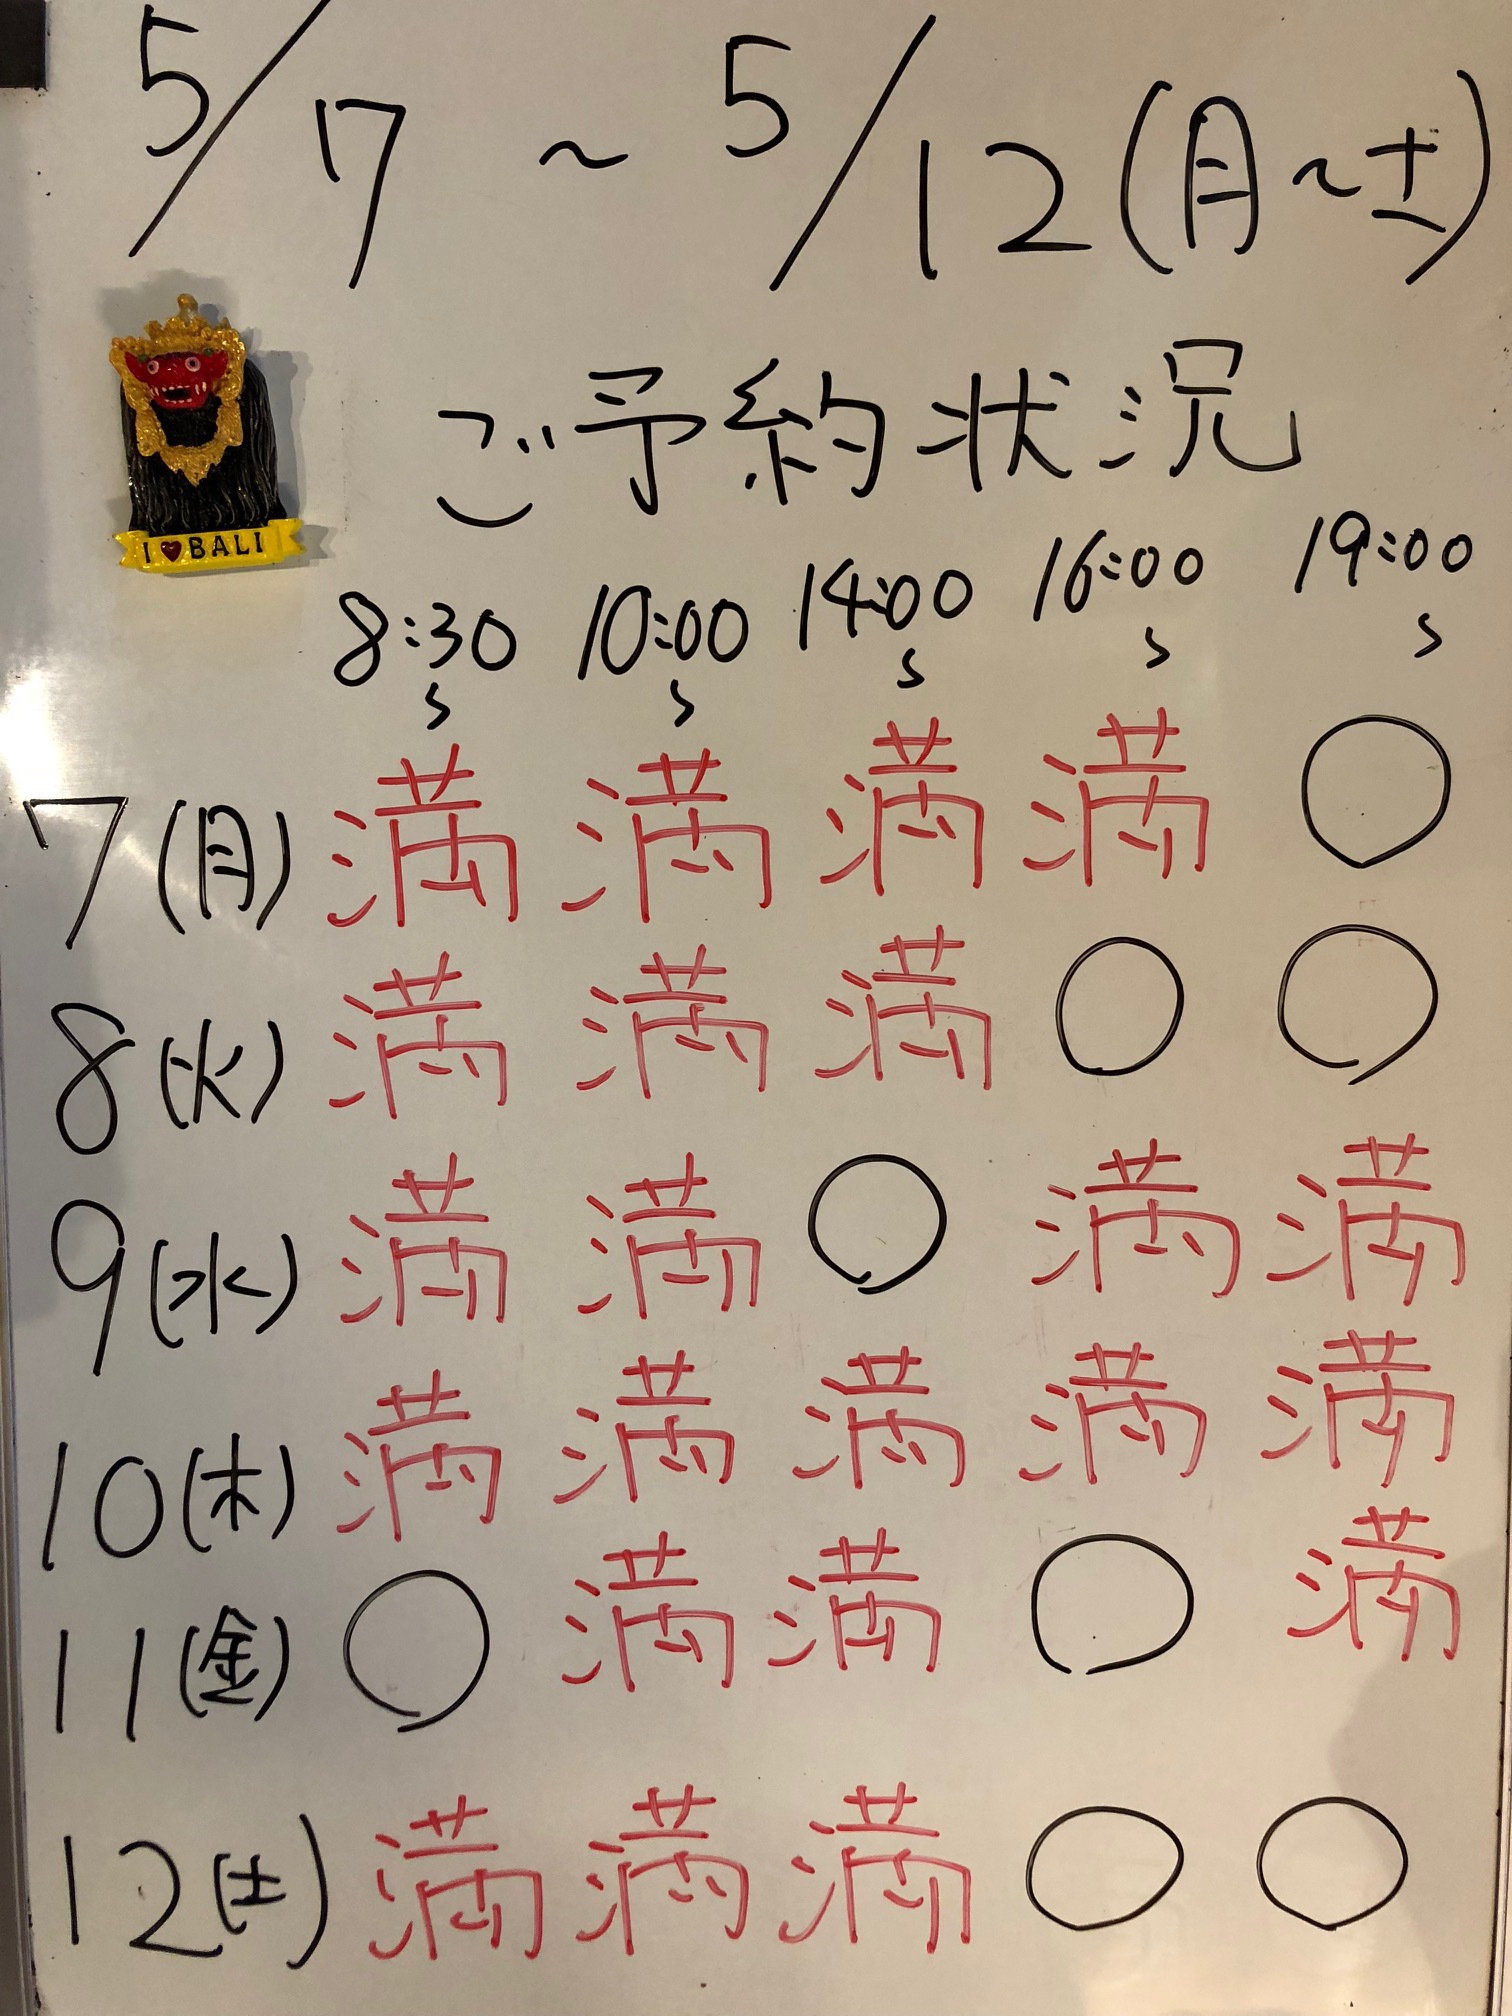 5/7 ~ 5/12(月~土)
I ♥ BALI
ご予約状況
8:30~ 10:00~ 14:00~ 16:00~ 19:00~
7(月) 満 満 満 満 ○
8(火) 満 満 満 ○ ○
9(水) 満 満 ○ 満 満
10(木) 満 満 満 満 満
11(金) ○ 満 満 ○ 満
12(土) 満 満 満 ○ ○